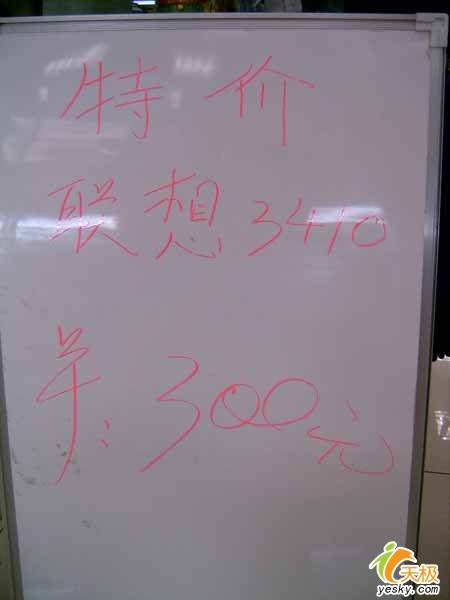 特价
联想3410
羊:300元
天极
yesky.com